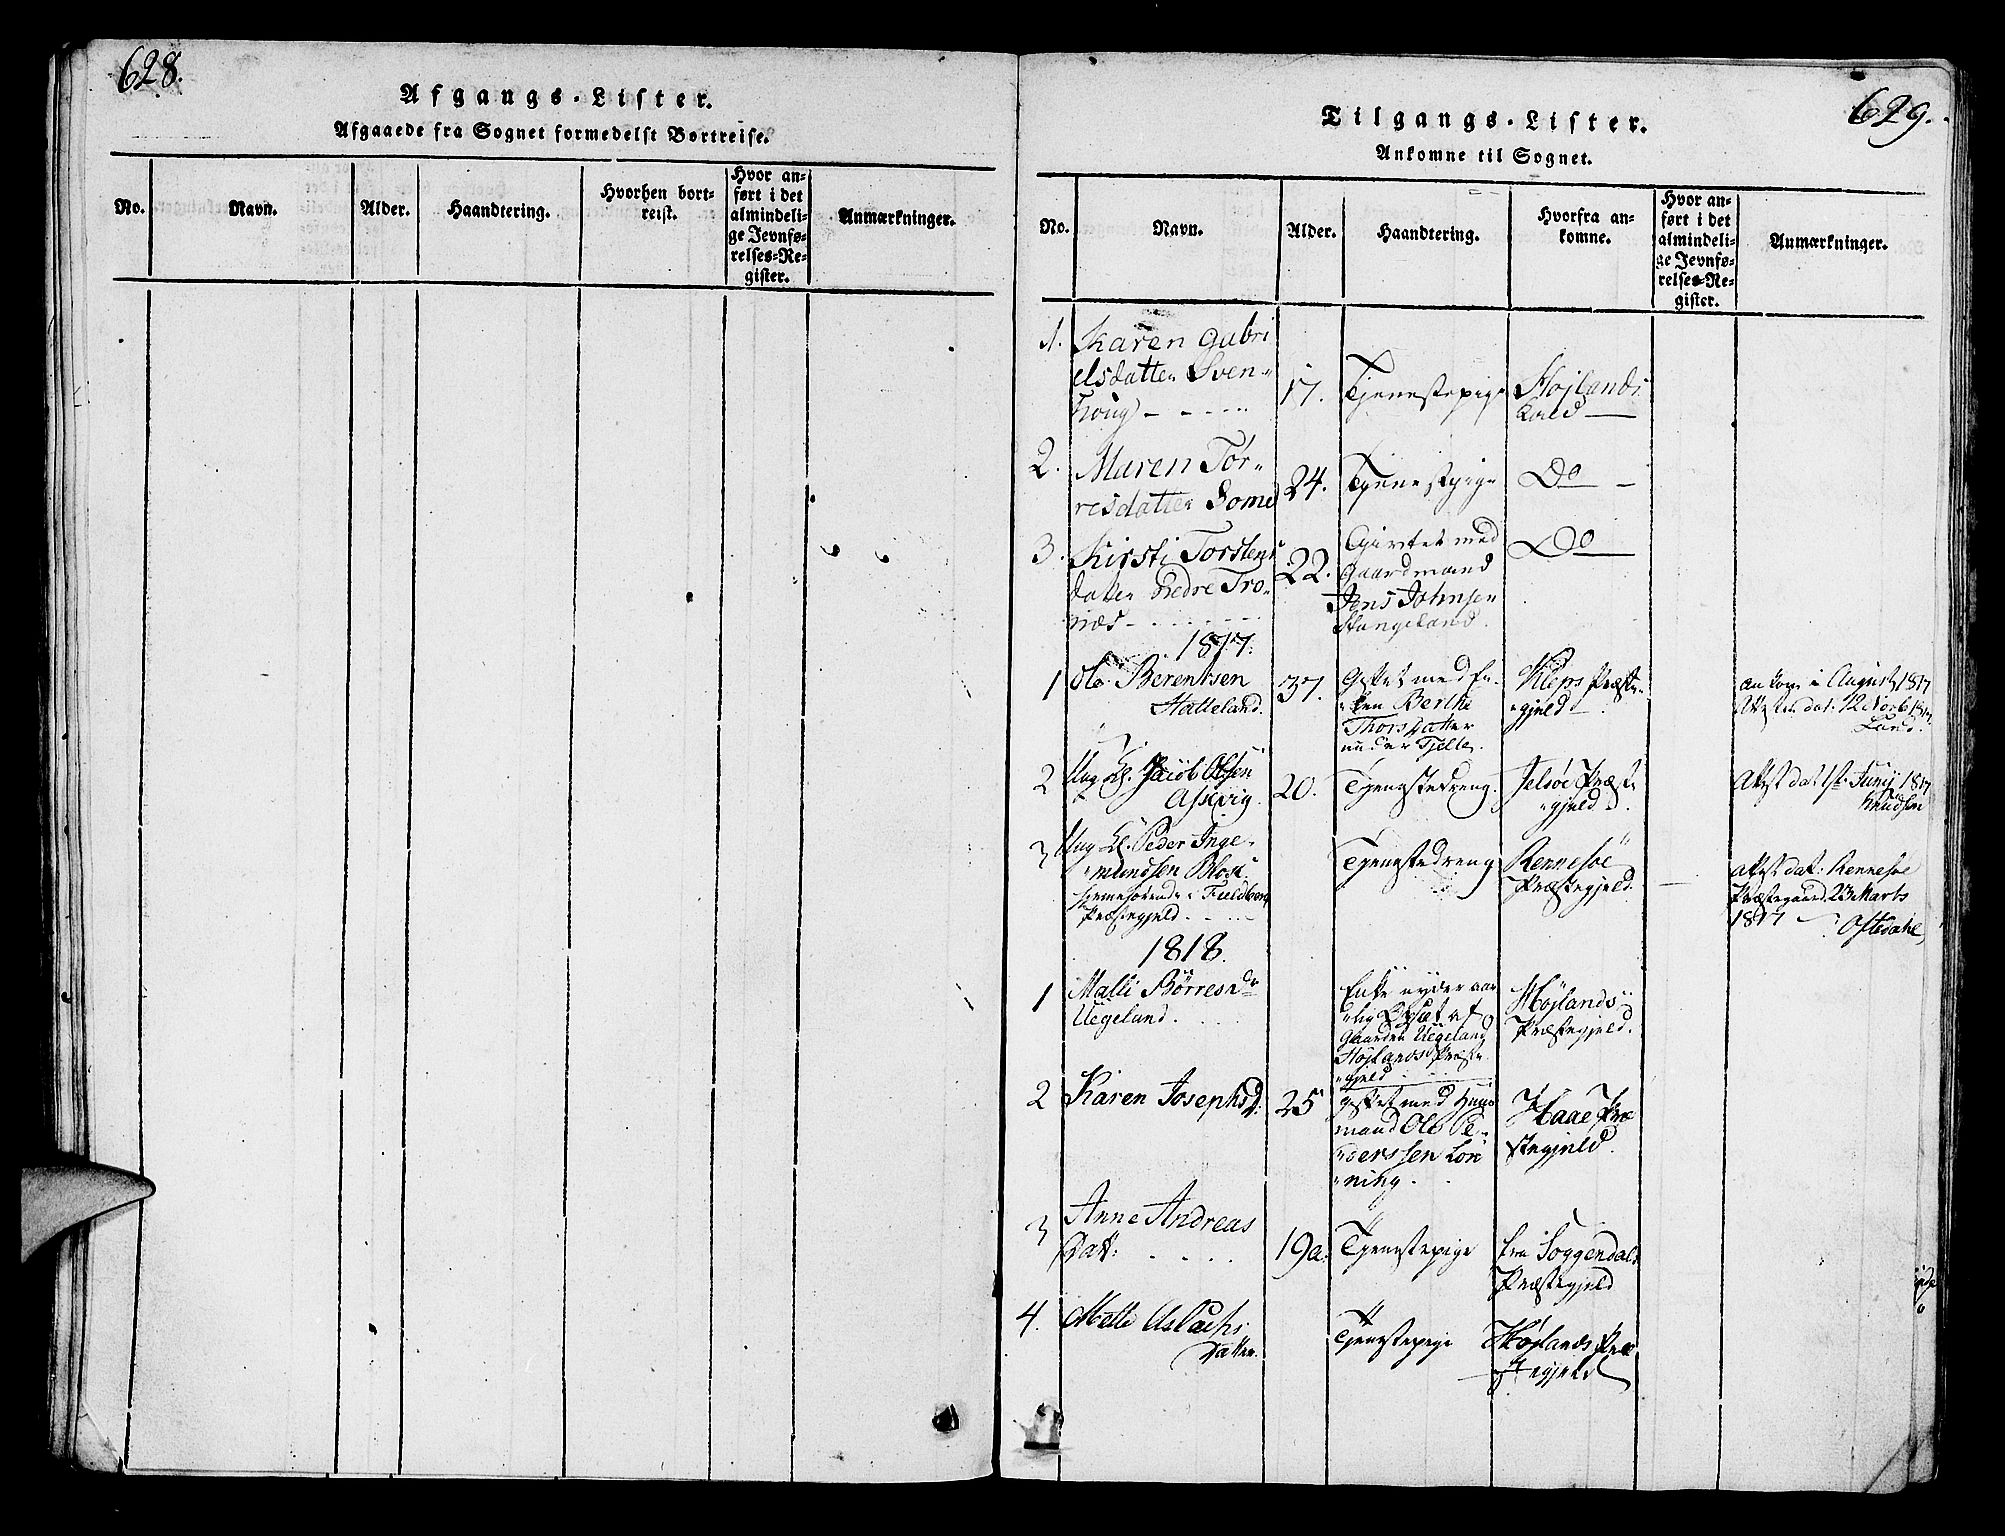 628.
Afgangs-Lister.
Afgaaede fra Sognet formedelst Bortreise.
No.
Navn.
Alder.
Haandtering.
Hvorhen bort-
reist.
Hvor an-
ført i det
almindeli-
ge Jevnfø-
relses-Re-
gister.
Anmærkninger.
629.
Tilgangs-Lister.
Ankomne til Sognet.
No.
Navn.
Alder.
Haandtering.
Hvorfra an-
komne.
Hvor an-
ført i det
almindeli-
ge Jevnfø-
relses-Re-
gister.
Anmærkninger.
1.
Karen Gabri
elsdatter Sven-
houg
17.
Tjenestepige
Højlands
Kald
2.
Maren Tør-
resdatter Somd
24.
Tjenestpige
Do
3.
Kirsti Torstens
datter Nedre Tro-
næs
22.
Givtet med
Gaardmand
Jens Johnsen
Stangeland.
Do
1817.
1
Ole Berentsen
Hatteland.
37.
Giftet med En-
ken Berthe
Thorsdatter
under Tjelte.
Kleps Præste-
gjeld
ankom i August 1817
Attest dat: 12 Novb 1817
Lund.
2
Ung K. Jacob Olsen
Askvig.
20.
Tjenestedreng.
Jelsøe Præste
gjeld.
Attest dat 1st Junij 1817
Knudsen
3
Ung K. Peder Inge-
mundsen
hjemmehørende i
Præstegjeld
Tjenestedreng
Rennesøe
Præstegjeld.
Attest dat: Rennesøe
Præstegaard 23 Marts
1817
Oftedahl
1818.
1
Malli Børresdr
Uegeland.
Enke nyder aar
lig af
Gaarden Uegeland
Højlands Præste
gjeld
Højlands
Præstegjeld.
2
Karen Josephsd:
25
giftet med Huus
mand Ole Pe-
dersen Løn
ning.
Haae Præ
stegjeld.
3
Anne Andreas
Datt:
19 a:
Tjenestepige
fra Soggendals
Præstegjeld
4.
Mette Aslachs
Datter.
Tjenestepige
Højlands Præ
stegjeld